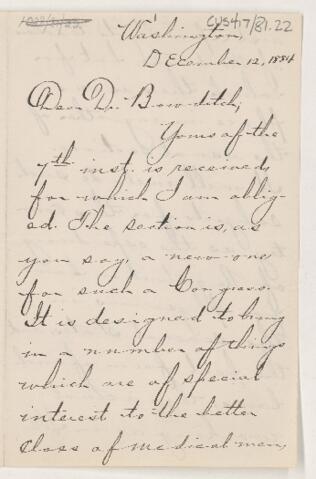 CUS417/81.22
Washington,
December 12, 1884
Dear Dr. Bowditch;
Yours of the
7th inst. is received,
for which I am oblig-
ed. The section is, as
you say, a new one
for such a Congress.
It is designed to bring
in a number of things
which are of special
interest to the better
class of medical men,